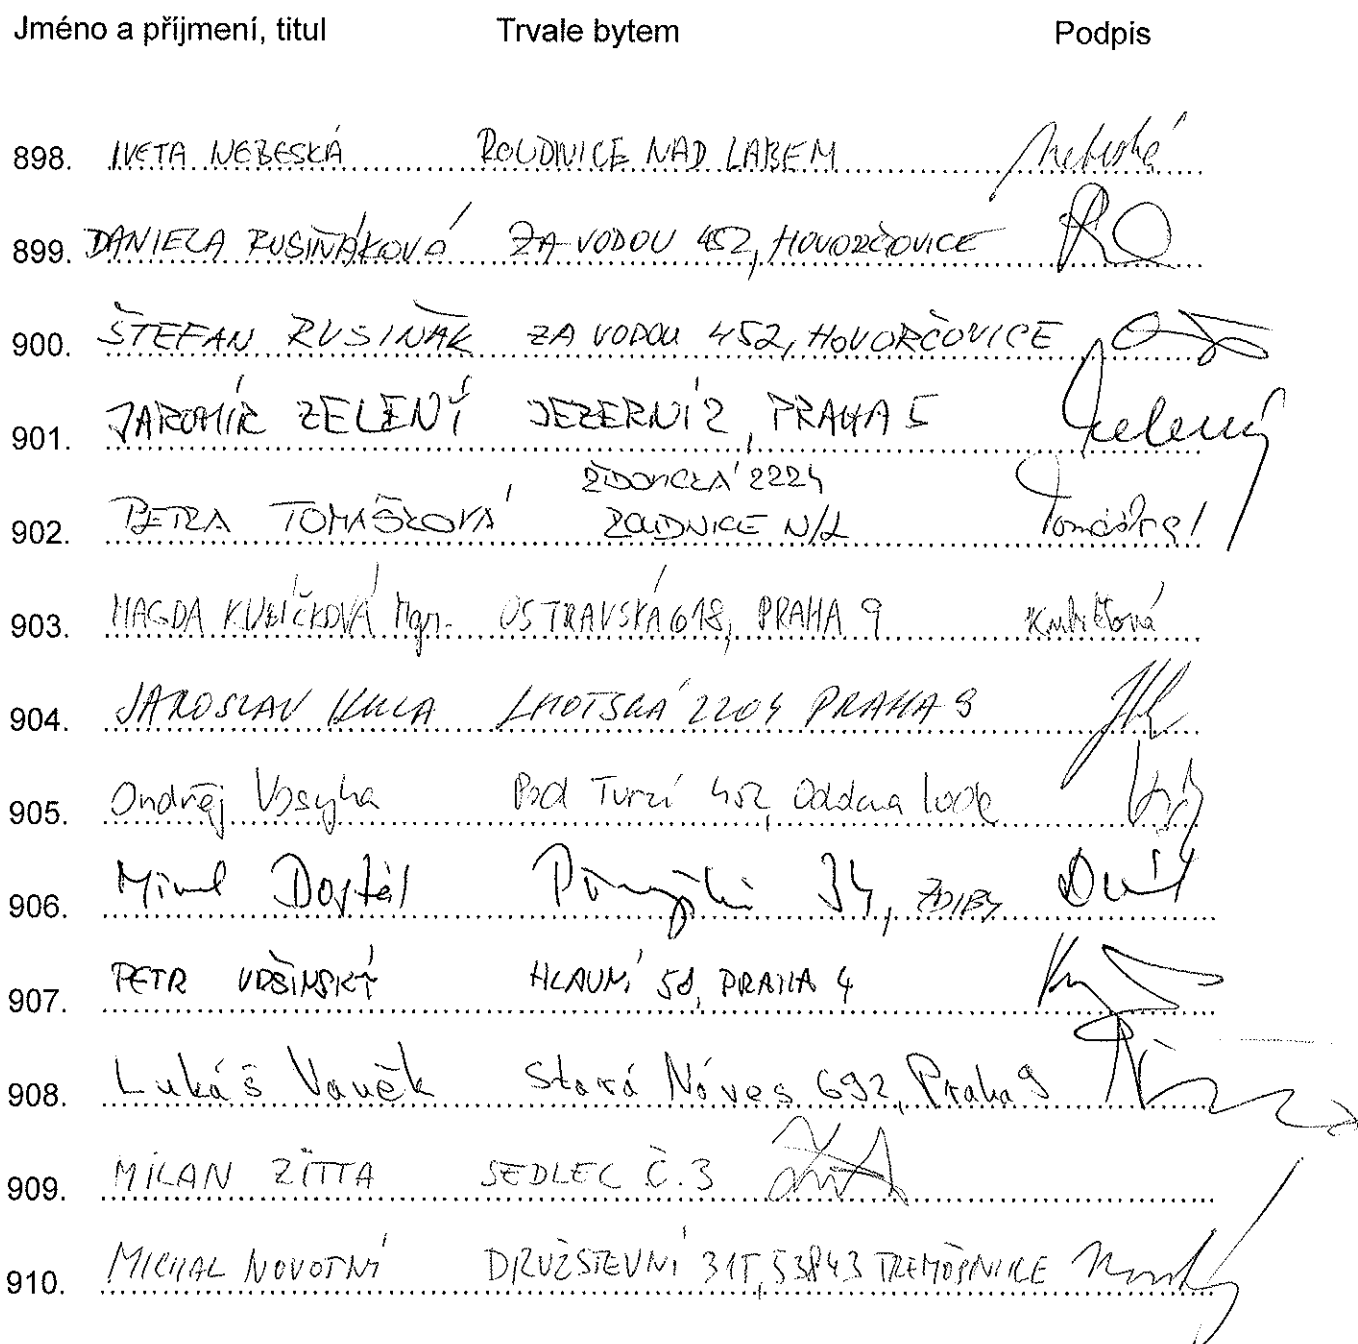 Jméno a příjmení, titul Trvale bytem Podpis
898. IVETA NEBESKÁ ROUDNICE NAD LABEM Nebeská
899. DANIELA RUSIŇÁKOVÁ ZA VODOU 452, HOVORČOVICE
900. ŠTEFAN RUSIŇÁK ZA VODOU 452, HOVORČOVICE
901. JAROMÍR ZELENÝ JEZERNÍ 2, PRAHA 5 Zelený
902. PETRA TOMÁŠKOVÁ 2224 ROUDNICE N/L
903. MAGDA KUBÍČKOVÁ Mgr. OSTRAVSKÁ 618, PRAHA 9 Kubíčková
904. JAROSLAV KULA LHOTSKÁ 2204 PRAHA 9
905. Ondřej Pod Turzí 452, Odolena Voda
906. Dostál 34, ZDIBY
907. PETR VRŠINSKÝ HLAVNÍ 58, PRAHA 4
908. Lukáš Vaněk Stará Náves 692, Praha 9
909. MILAN ZÍTTA SEDLEC Č.3
910. MICHAL NOVOTNÝ DRUŽSTEVNÍ 315, 53843 TŘEMOŠNICE